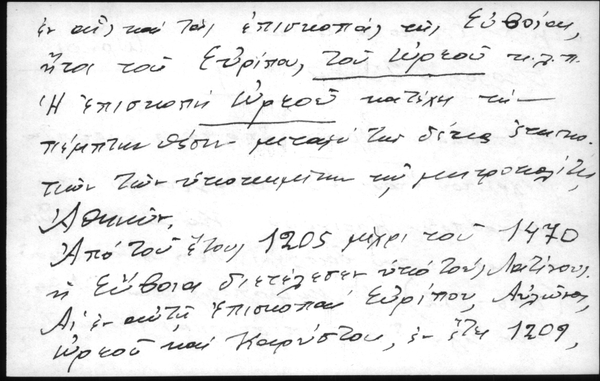 ἐν αἷς καὶ τὰς ἐπισκοπὰς τῆς Εὐβοίας,
ἤτοι τοῦ Εὐρίπου, τοῦ Ὠρεοῦ κ.λ.π.
Ἡ ἐπισκοπὴ Ὠρεοῦ κατέχει τὴν
πέμπτην θέσιν μεταξὺ τῶν δέκα
τῶν ὑποκειμένων τῆς μητροπόλεως
Ἀθηνῶν.
Ἀπὸ τοῦ ἔτους 1205 μέχρι τοῦ 1470
ἡ Εὔβοια διετέλεσεν ὑπὸ τοὺς Λατίνους.
Αἱ ἐν αὐτῇ ἐπισκοπαὶ Εὐρίπου, Αὐλῶνος,
Ὠρεοῦ καὶ Καρύστου, ἐν ἔτει 1209,